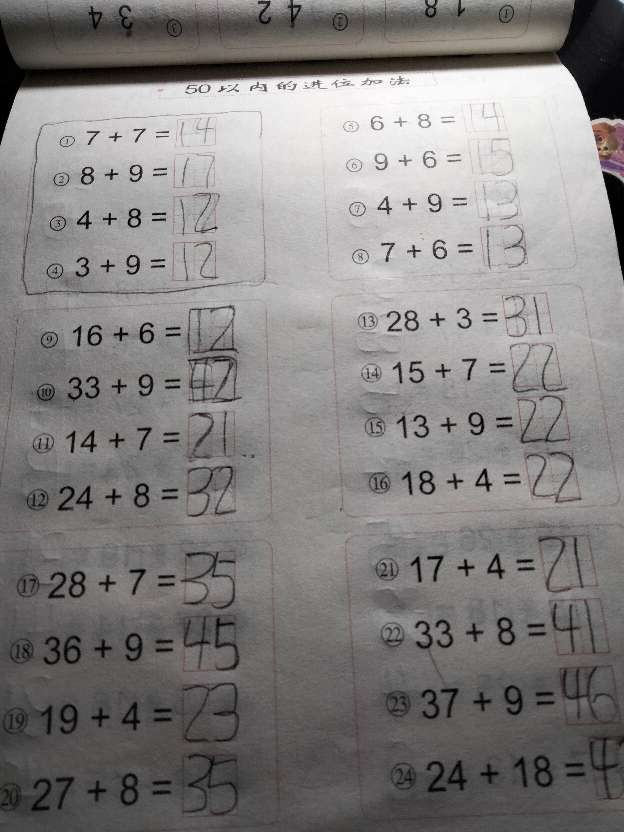 ① 1 8
② 4 2
③ 3 4
50以内的进位加法
① 7 + 7 = 14
② 8 + 9 = 17
③ 4 + 8 = 12
④ 3 + 9 = 12
⑤ 6 + 8 = 14
⑥ 9 + 6 = 15
⑦ 4 + 9 = 13
⑧ 7 + 6 = 13
⑨ 16 + 6 = 12
⑩ 33 + 9 = 42
⑪ 14 + 7 = 21
⑫ 24 + 8 = 32
⑬ 28 + 3 = 31
⑭ 15 + 7 = 22
⑮ 13 + 9 = 22
⑯ 18 + 4 = 22
⑰ 28 + 7 = 35
⑱ 36 + 9 = 45
⑲ 19 + 4 = 23
⑳ 27 + 8 = 35
㉑ 17 + 4 = 21
㉒ 33 + 8 = 41
㉓ 37 + 9 = 46
㉔ 24 + 18 = 4